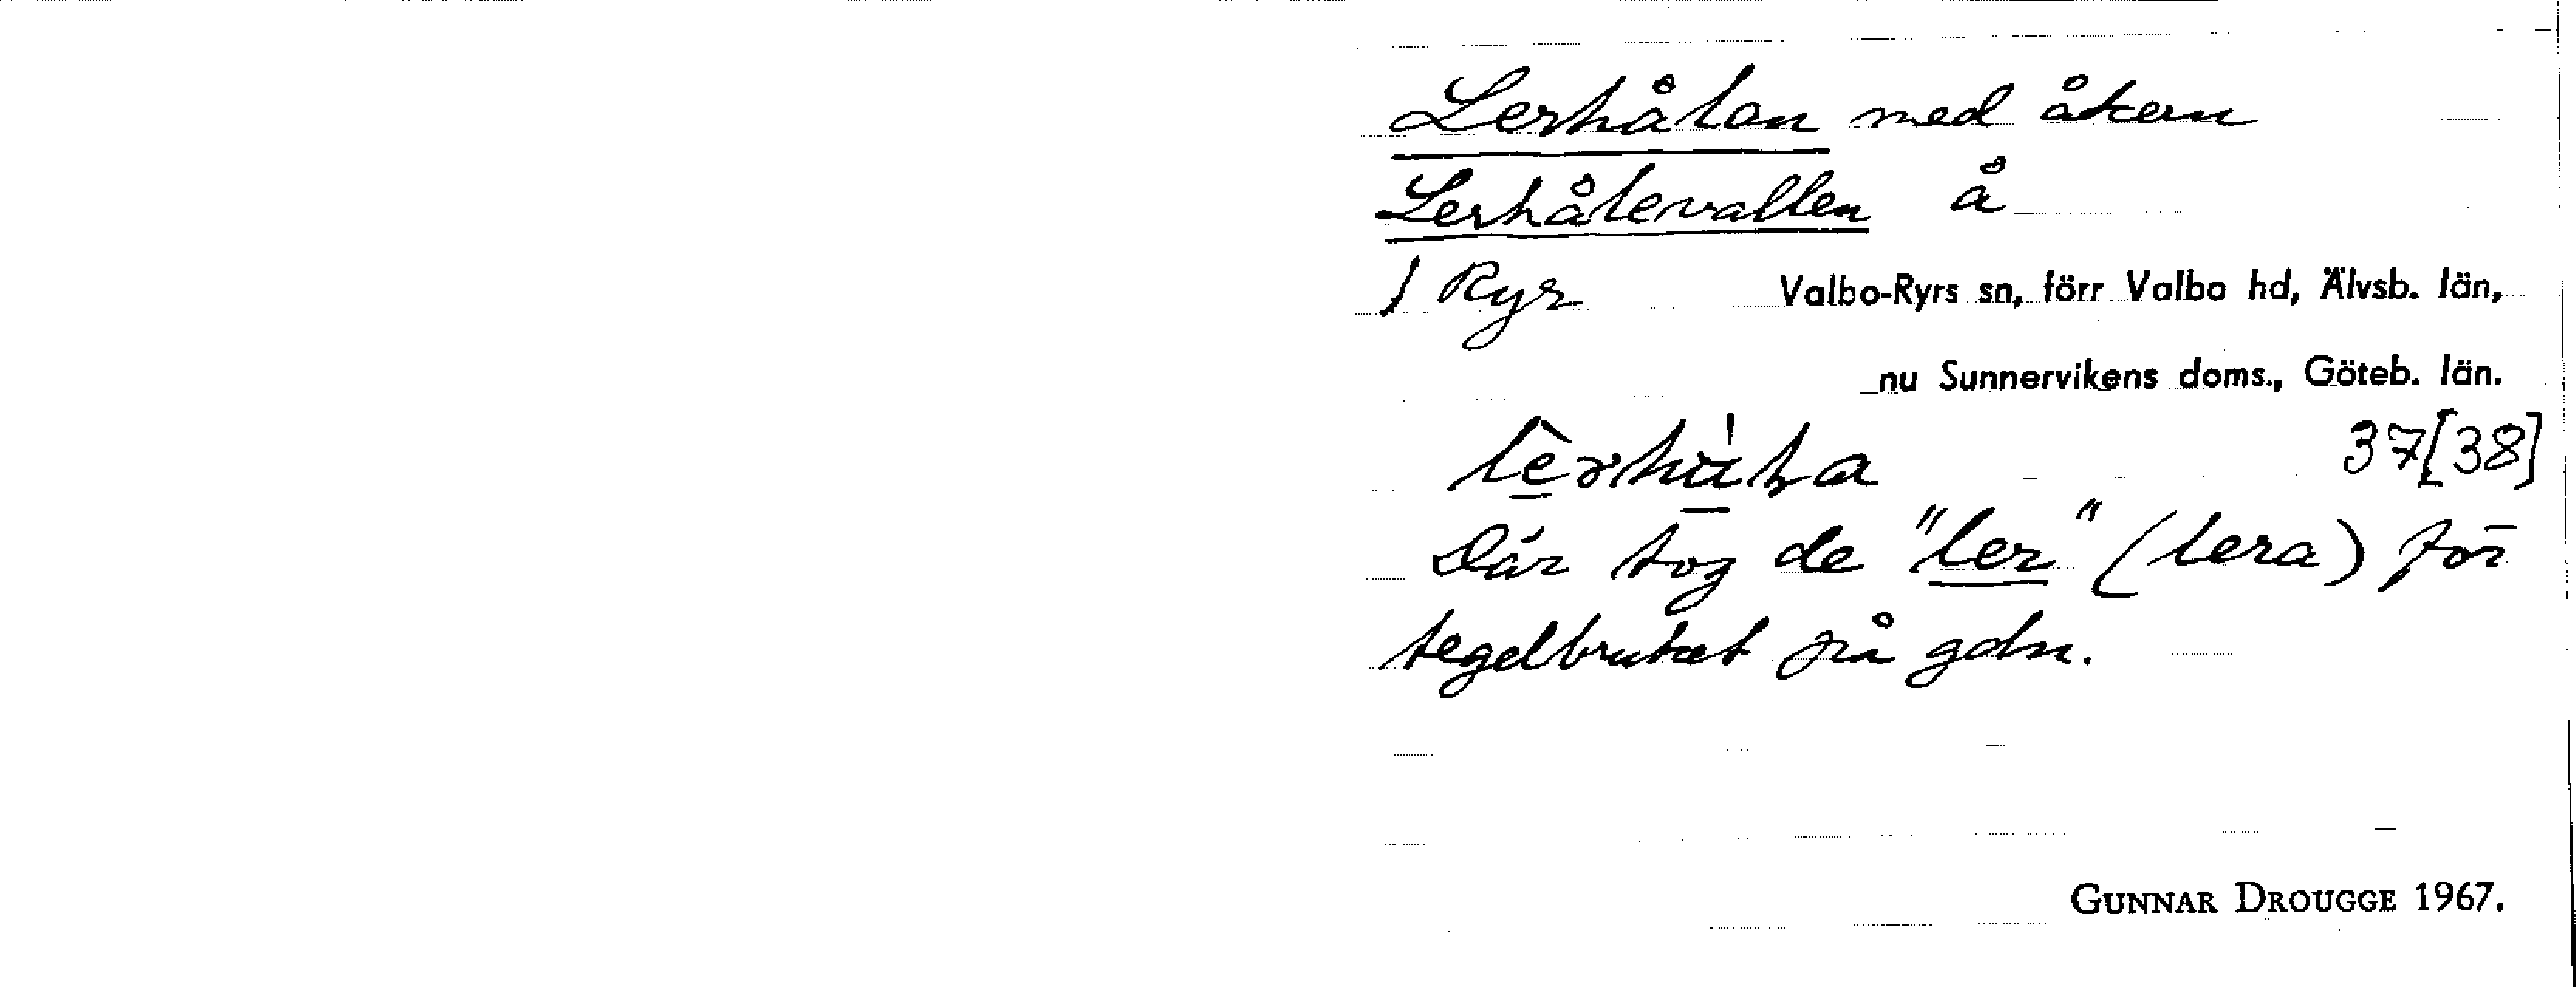 Lerhålan med åkern
Lerhålevallen å
1 Ryr Valbo-Ryrs sn, förr Valbo hd, Älvsb. län,
nu Sunnervikens doms., Göteb. län.
37[38]
Där tog de "ler" (lera) för
tegelbruket på gdn.
GUNNAR DROUGGE 1967.